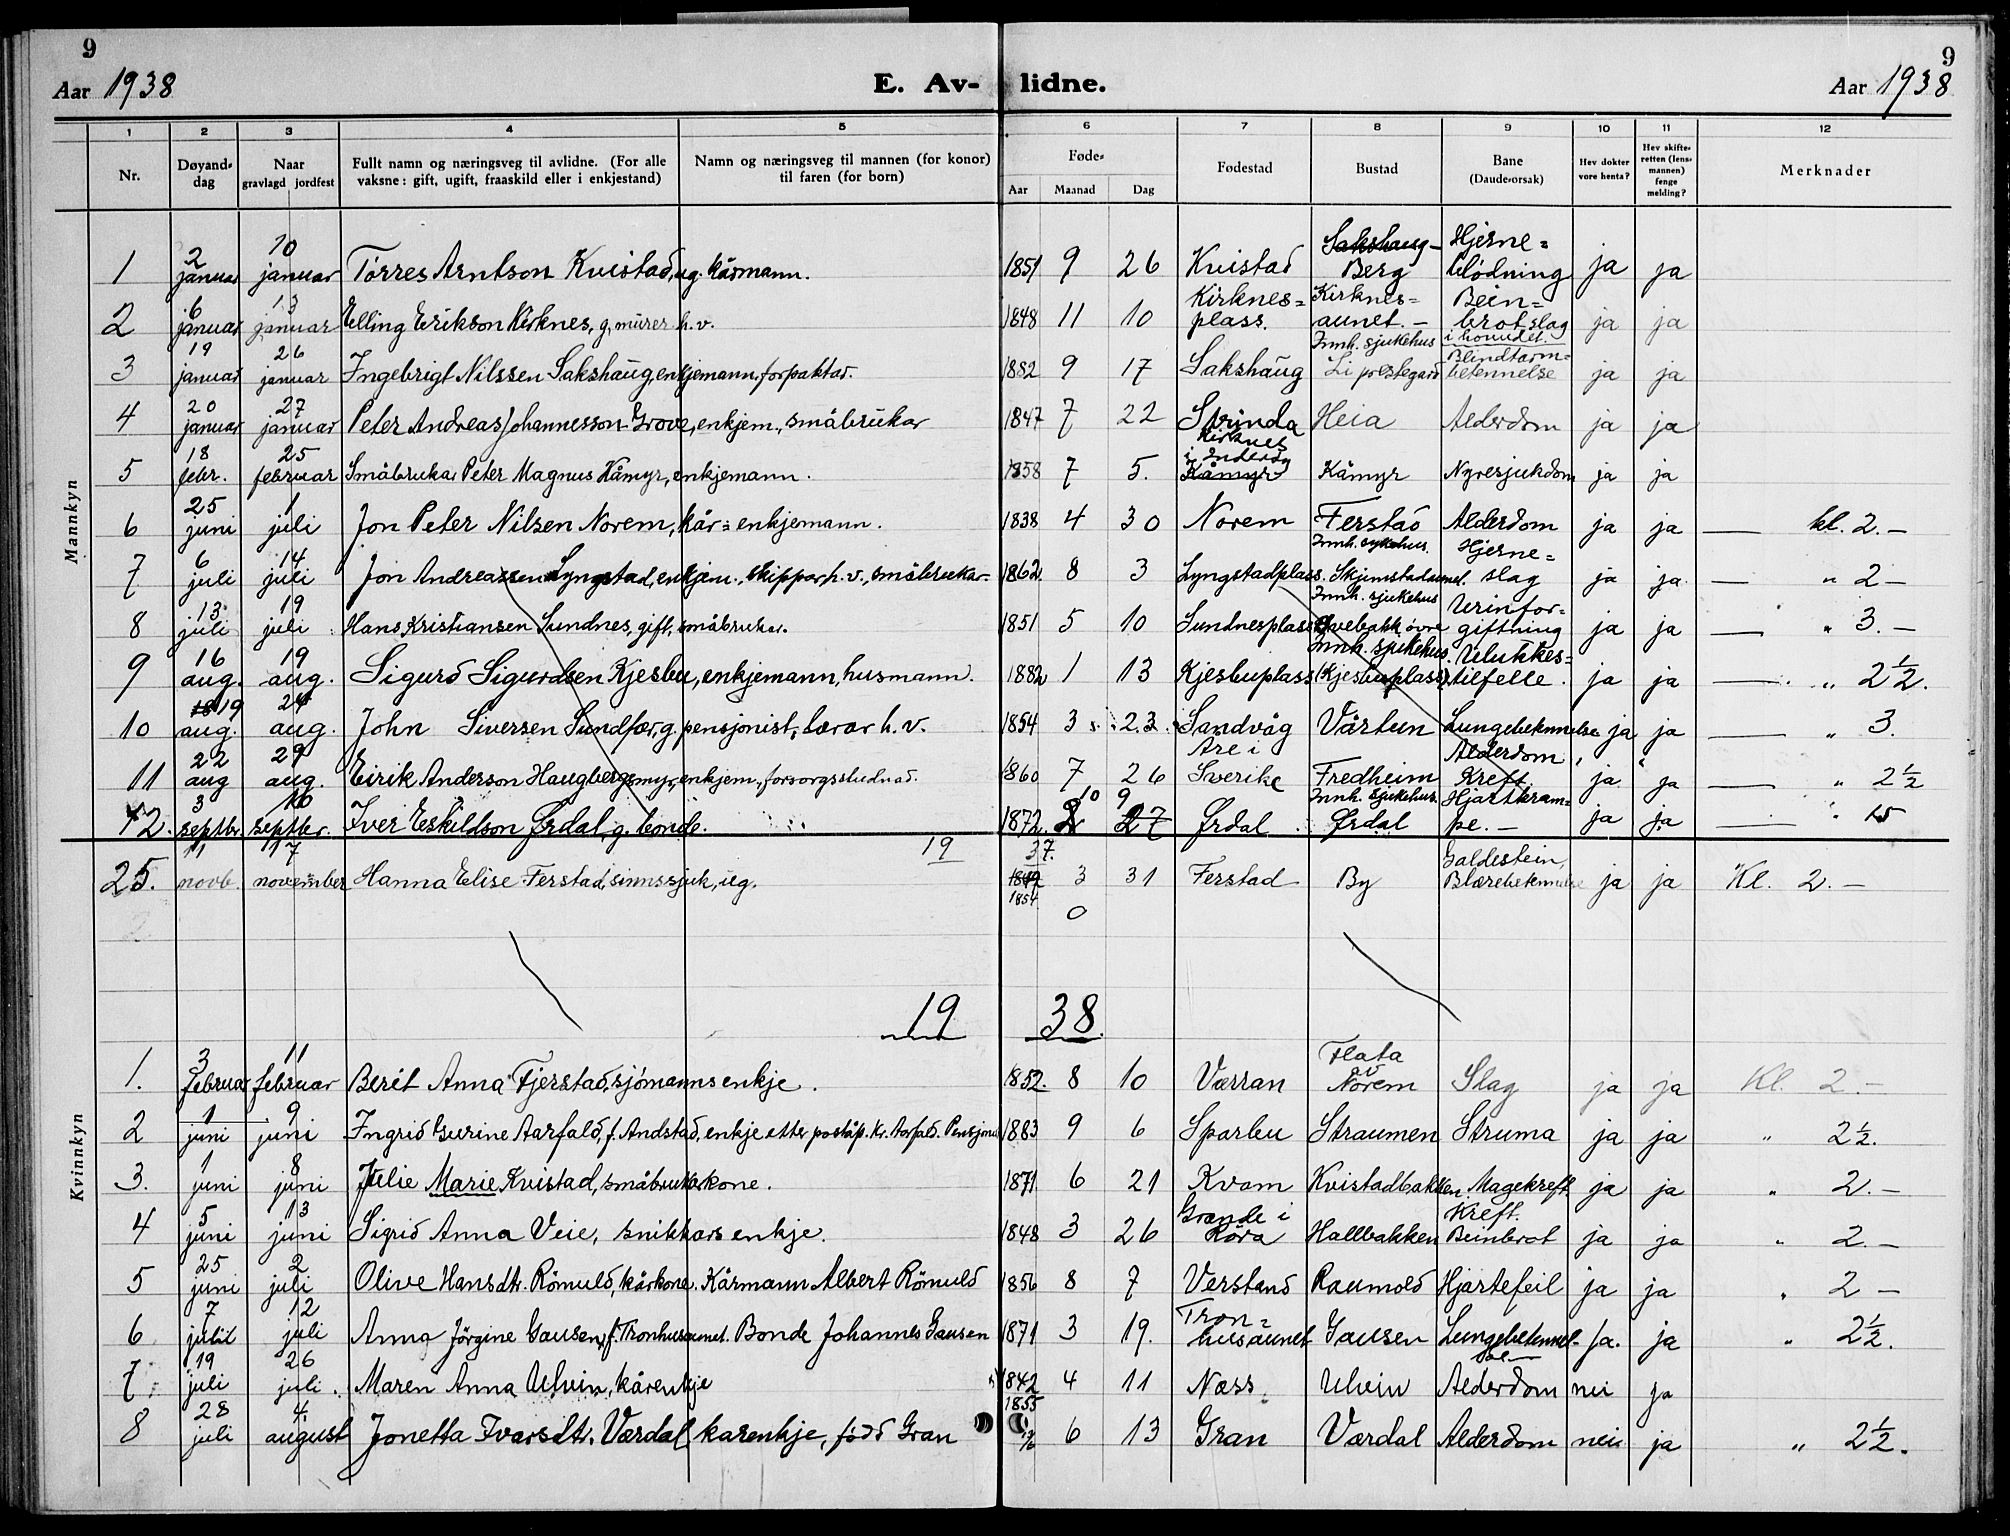 9
9
Aar 1938
E. Av- lidne.
Aar 1938
1 2 3 4 5 6 7 8 9 10 11 12
Nr.
Døyand-
dag
Naar
gravlagd jordfest
Fullt namn og næringsveg til avlidne. (For alle
vaksne: gift, ugift, fraaskild eller i enkjestand)
Namn og næringsveg til mannen (for konor)
til faren (for born)
Føde-
Aar Maanad Dag
Fødestad
Bustad
Bane
(Daude-orsak)
Hev dokter
vore henta?
Hev skifte-
retten (lens-
mannen)
fenge
melding?
Merknader
Mannkyn
2 10 Sakshaug- Hjerne=
1 januar januar Tórres Arntson Kvistad, ug. kårmann. 1851 9 26 Kvistad Berg blødning ja ja
6 13 Kirknes= Kirknes= Bein=
2 januar januar Elling Erikson Kirknes, g, murer h.v. 1848 11 10 plass. aunet.- brot slag ja ja
19 26 Innh. sjukehus i hovudet. Blindtarm=
3 januar januar Ingebrigt Nilssen Sakshaug, enkjemann, forpaktar. 1882 9 17 Sakshaug Li prestegard betennelse ja ja
20 27
4 januar januar Peter Andreas Johannesson Grove, enkjem., småbrukar 1847 7 22 Strinda Heia Alderdom ja ja
18 25 Kirknes i Inderøy
5 febr. februar Småbrukar Peter Magnus Kåmyr, enkjemann. 1858 7 5. Kåmyr Kåmyr Nyresjukdom ja ja
25 1
6 juni juli Jon Peter Nilsen Norem, kår=enkjemann. 1838 4 30 Norem Ferstad Alderdom ja ja — kl. 2.-
6 14 Innh. sykehus. Hjerne=
7 juli juli Jon Andreassen Lyngstad, enkjem., skippar h.v., småbrukar- 1862 8 3 Lyngstadplass. Skjemstadaunet. slag ja ja — " 2-
13 19 Innh. sjukehus Urinfor=
8 juli juli Hans Kristiansen Sundnes, gift, småbrukar. 1851 5 10 Sundnesplass øvre giftning ja ja — " 3.-
16 19 Innh. sjukehus. Ulukkes=
9 aug. aug. Sigurd Sigurdsen Kjesbu, enkjemann, husmann. 1882 1 13 Kjesbuplass (Kjesbuplass) tilfelle. ja ja — " 2½.
18 19 24
10 aug. aug. John Siversen Sundfær, g. pensjonist, lærar h.v. 1854 3 23. Sandvåg Vårtun Lungebetennelse ja ja — " 3.
22 29 Åre i Alderdom
11 aug aug. Eirik Anderson Haugbergsmyr, enkjem., forsorgsstudnad. 1860 7 26 Sverike Fredheim Kreft ja ja — " 2½
3 10 10 9 Innh. sjukehus. Hjartkram=
12. septbr. septbr. Iver Eskildson Ørdal, g. bonde. 1872. 2 27 Ørdal Ørdal pe.- ja ja — " 15
19 37.
11 17 Galdestein,
25. novb. november Hanna Elise Ferstad, sinnssjuk, ug. 1849 3 31 Ferstad By Blærebetennelse ja ja Kl. 2.-
1854
0
19 38.
Kvinnkyn
3 11 Flata av
1. februar februar Berit Anna Fjerstad, sjómanns enkje. 1852. 8 10 Værran Norem Slag ja ja Kl. 2.-
1 9
2 juni juni Ingrid Gurine Aarfald, f. Andstad, enkje etter poståp. Kr. Aarfald. 1883 9 6 Sparbu Straumen Struma ja ja " 2½.
1 8
3. juni juni Julie Marie Kvistad, småbrukarkone. 1871 6 21 Kvam Kvistadbakken. Magekreft ja ja " 2.-
5 13 Grande i Kreft.
4 juni juni Sigrid Anna Veie, snikkars enkje. 1848 3 26 Róra Hallbakken Beinbrot ja ja " 2.-
25 2
5 juni juli Olive Hansdtr. Römuld, kårkone. Kårmann Albert Römuld 1856 8 7 Verstand Raumold Hjartefeil ja ja " 2-
7 12 Tron=
6 juli juli Anna Jörgine Gausen, f. Tronhusaunet. Bonde Johannes Gausen 1871 3 19. husaunet Gausen Lungebetennel- ja. ja " 2½.
19 26
7. juli juli. Maren Anna Ulvin, kårenkje 1842 4 11 Næss. Ulvin Alderdom nei ja
28 4. 1855
8 juli august Jonetta Ivarsdtr. Værdal, karenkje, född Gran 6 13 Gran Værdal Alderdom nei ja " 2½.